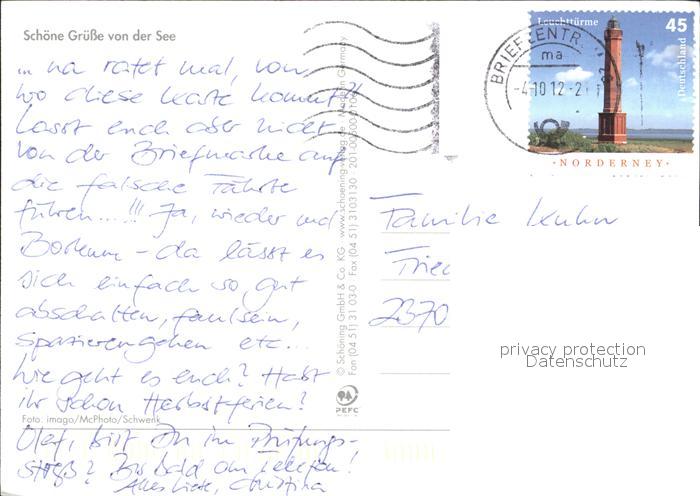 Schöne Grüße von der See
... na ratet mal, von
wo diese Karte kommt?!
Lasst euch aber nicht
von der Briefmarke auf
die falsche Fährte
führen...!!! Ja, wieder mal
Borkum - da lässt es
sich einfach so gut
abschalten, faulsein,
spazierengehen etc...
Wie geht es euch? Habt
ihr schon Herbstferien?
Foto: imago/McPhoto/Schwenk
Olaf, bist Du im Prüfungs-
streß? Bis bald am Telefon!
Alles Liebe, Christina
© Schöning GmbH & Co. KG · www.schoening-verlag.de · Made in Germany
Fon (04 51) 31 03-0 · Fax (04 51) 3103130
PEFC
BRIEFZENTR
ma
-4.10.12-2
Leuchttürme
45
Deutschland
·NORDERNEY·
Familie Kuhn
2370
privacy protection
Datenschutz